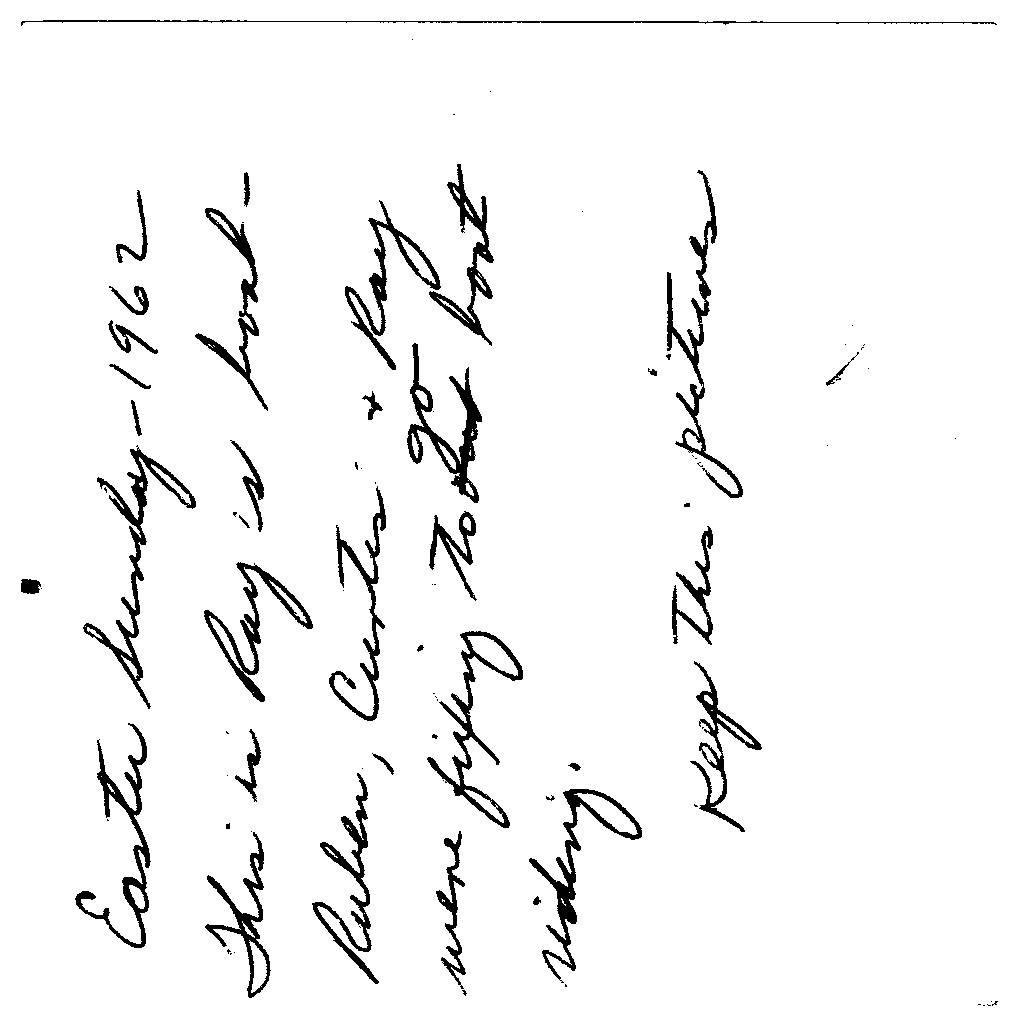 Easter Sunday - 1962
This is Ray is boat -
Ruben, Curtis & Ray
were fixing to go boat
riding.
Keep this pictures